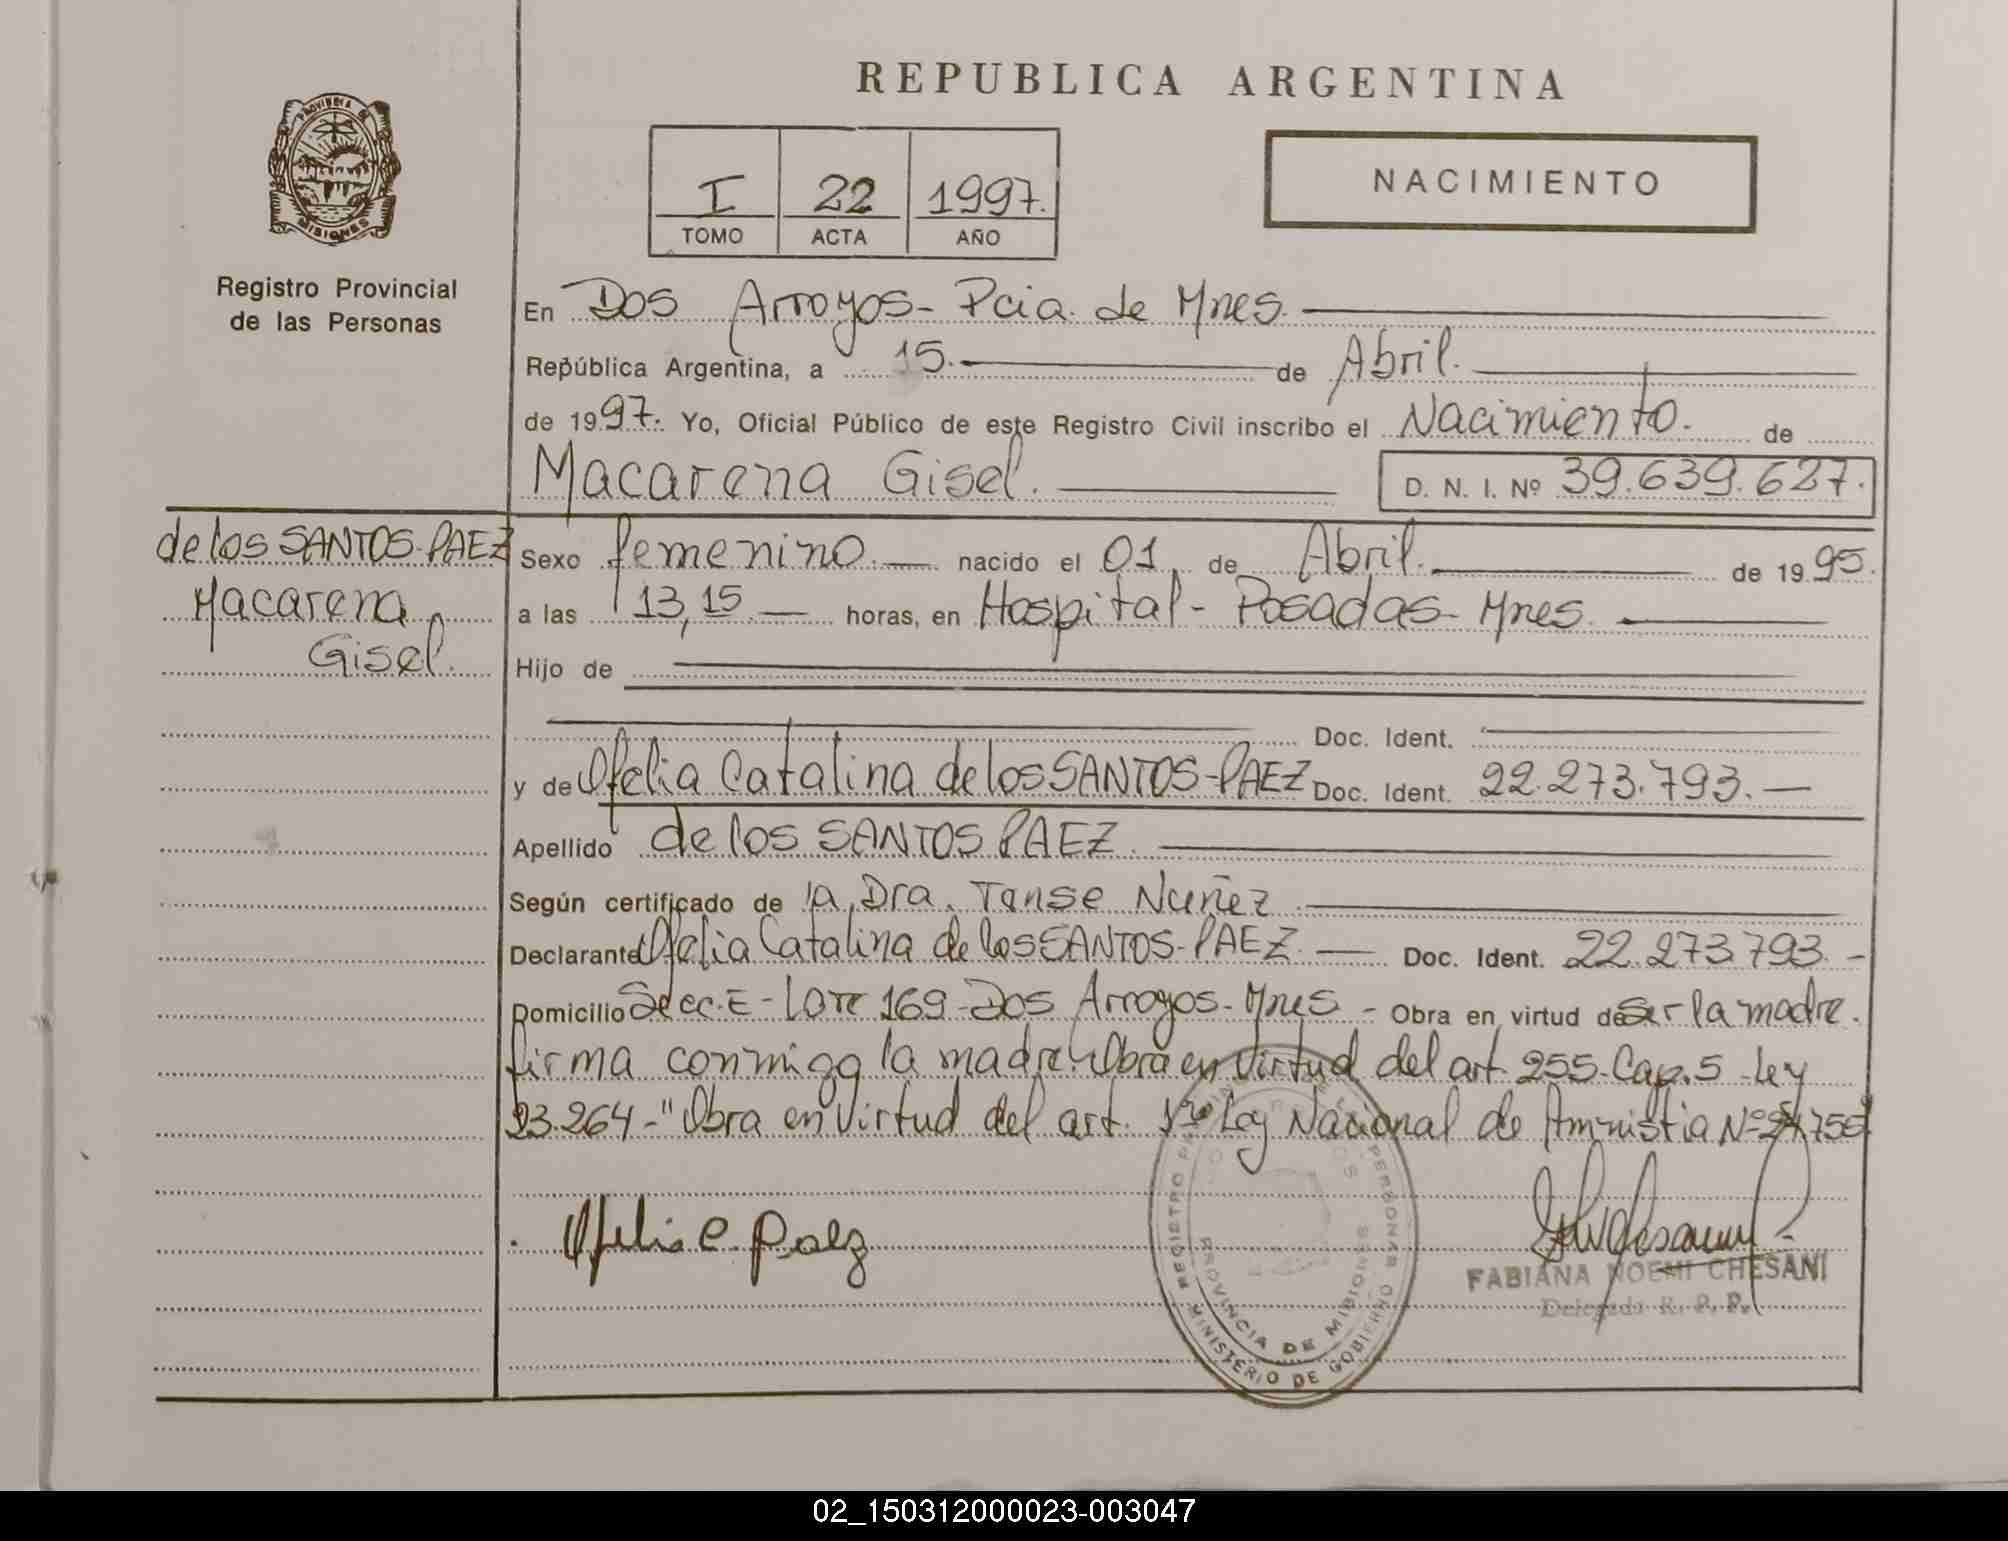 REPUBLICA ARGENTINA
PROVINCIA DE
MISIONES
Registro Provincial
de las Personas
I 22 1997.
TOMO ACTA AÑO
NACIMIENTO
En Dos Arroyos - Pcia. de Mnes.
República Argentina, a 15. de Abril.
de 1997. Yo, Oficial Público de este Registro Civil inscribo el Nacimiento. de
Macarena Gisel. D. N. I. Nº 39.639.627.
de los SANTOS-PAEZ
Macarena
Gisel.
Sexo femenino. nacido el 01 de Abril. de 1995.
a las 13,15 horas, en Hospital - Posadas - Mnes.
Hijo de
Doc. Ident.
y de Ofelia Catalina de los SANTOS-PAEZ Doc. Ident. 22.273.793.
Apellido de los SANTOS PAEZ
Según certificado de la Dra. Nuñez
Declarante Ofelia Catalina de los SANTOS-PAEZ. Doc. Ident. 22.273.793. -
Domicilio Secc. E - Lote 169 - Dos Arroyos - Mnes - Obra en virtud de Ser la madre.
firma conmigo la madre. Obra en Virtud del art. 255. Cap. 5 - Ley
23.264 - "Obra en Virtud del art. 1º Ley Nacional de Amnistia Nº 24.755"
Ofelia C Paez
REGISTRO PERSONAS
PROVINCIA DE MISIONES
MINISTERIO DE GOBIERNO
FABIANA NOEMI CHESANI
Delegada R. P. P.
02_150312000023-003047